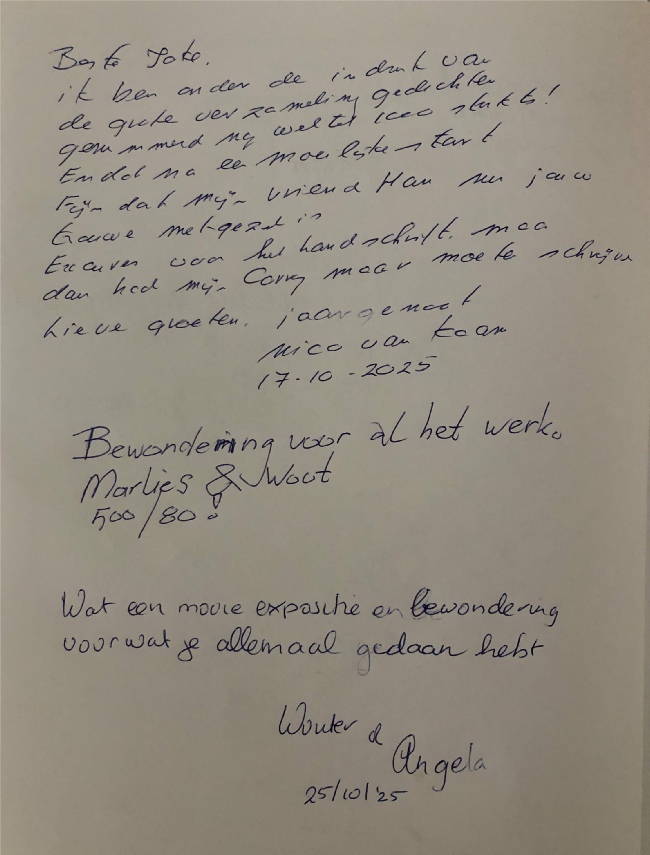 Beste Joke.
ik ben onder de indruk van
de grote verzameling gedichten
genummerd nog wel tot 1000 stuks!
En dat na een moeilijke start
Fijn dat mijn vriend Han nu jouw
trouwe met-gezel is
Excuses voor het handschrift. maa
dan had mijn Corry maar moete schrijve
Lieve groeten. jaargenoot
Nico van
17-10-2025
Bewondering voor al het werk.
Marlies & Wout
500/80!
Wat een mooie expositie en bewondering
voor wat je allemaal gedaan hebt
Wouter &
Angela
25/10/'25